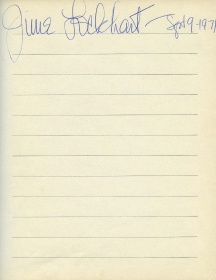 June Lockhart - Sept 9-1971